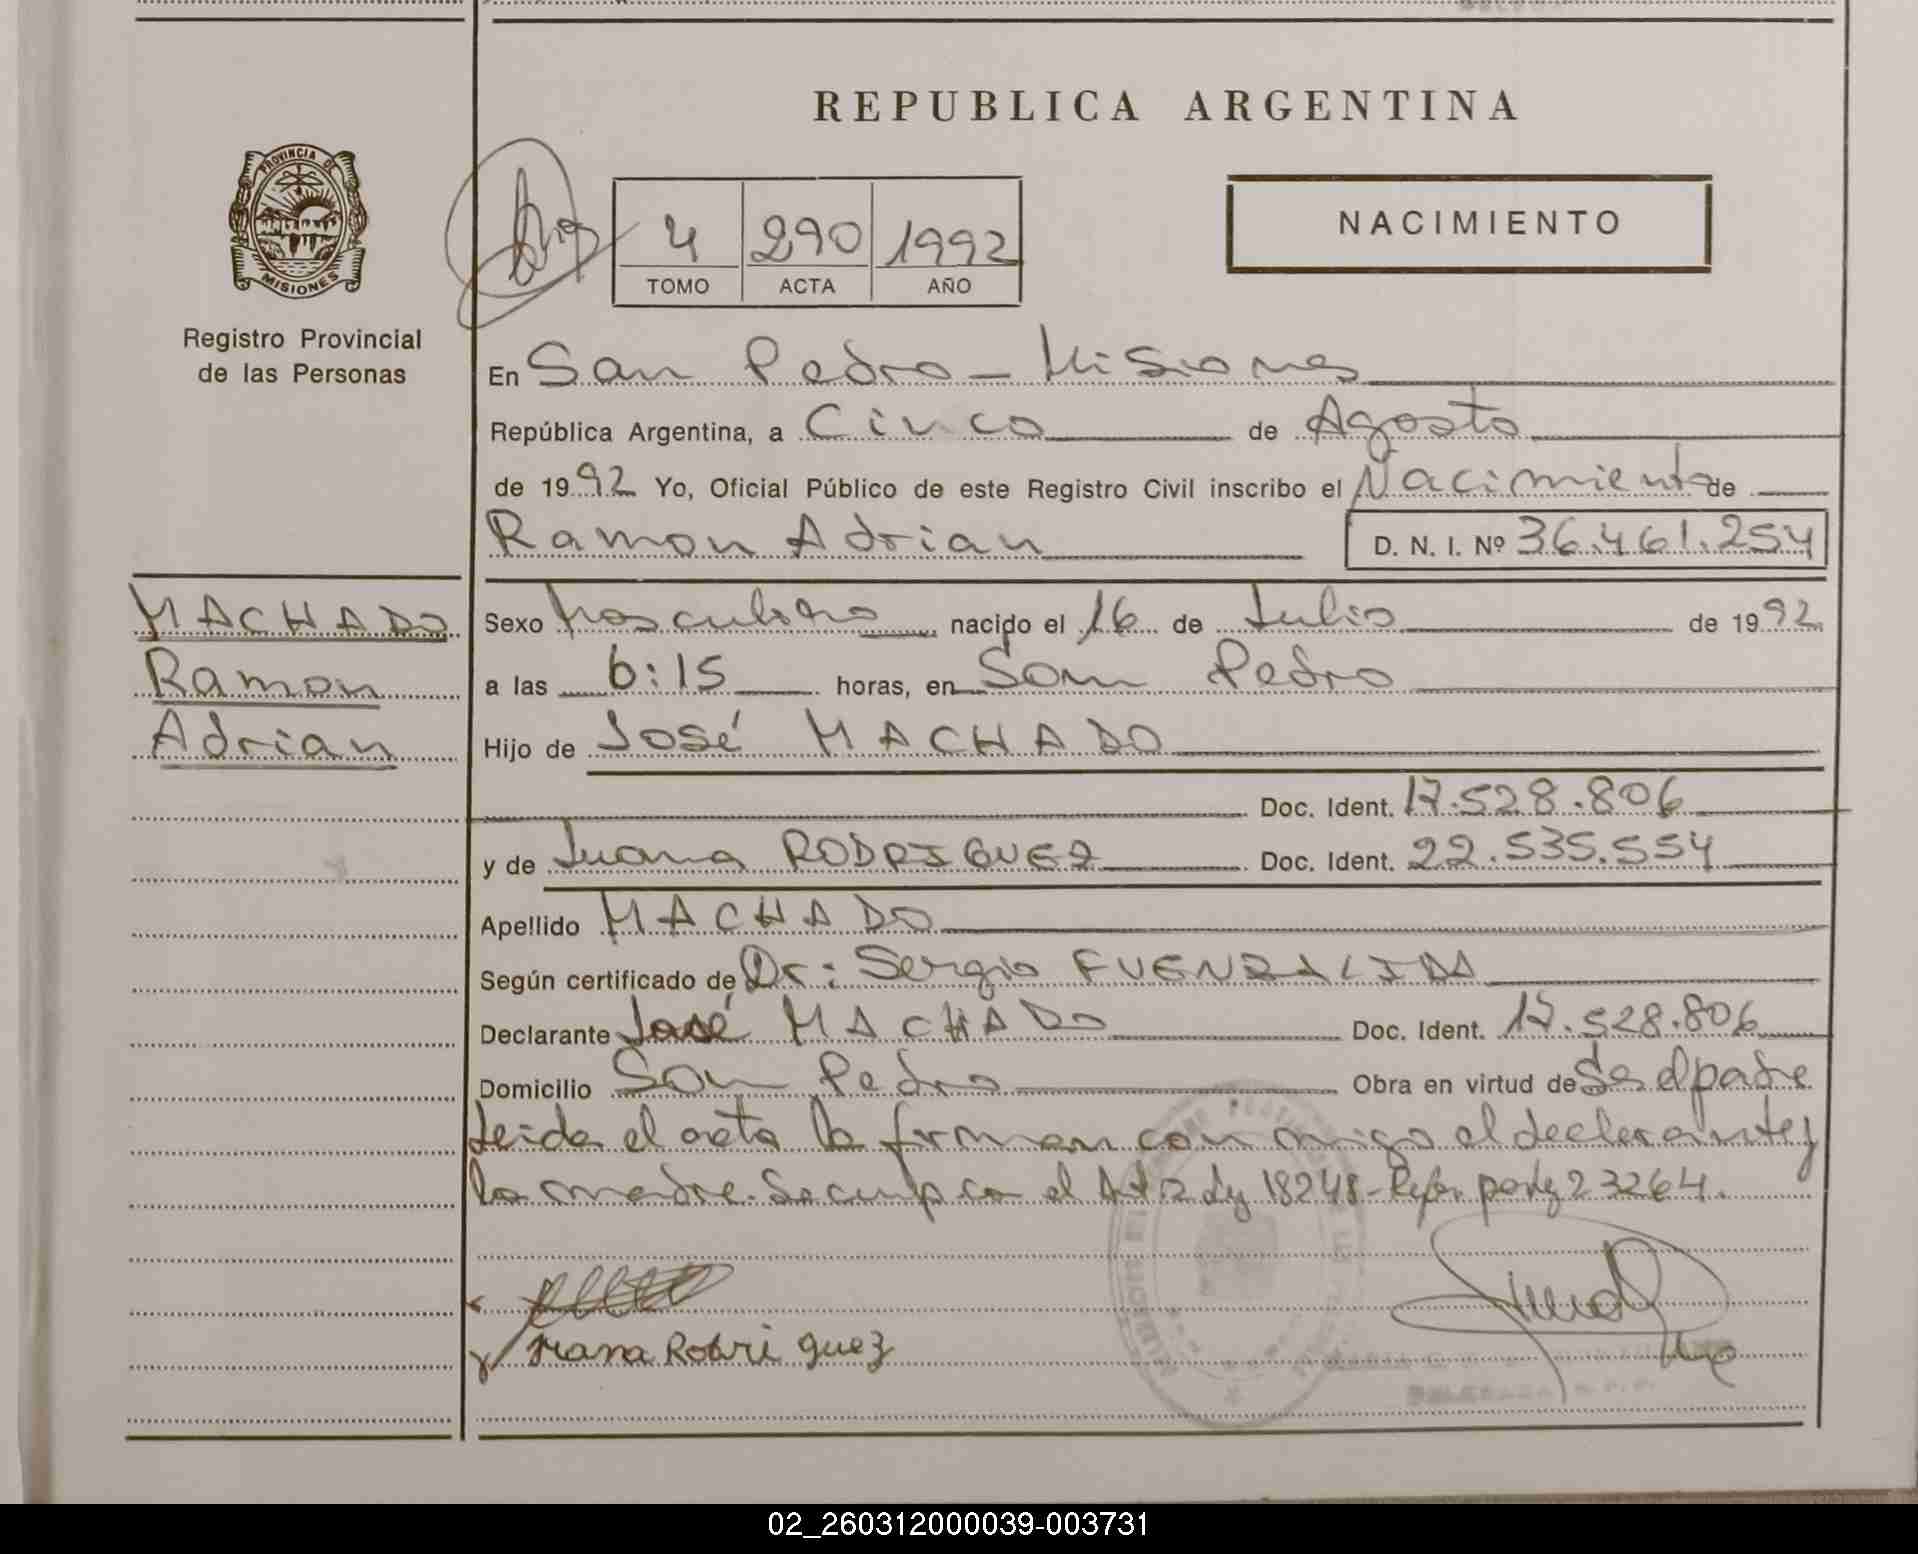 REPUBLICA ARGENTINA
PROVINCIA DE
MISIONES
Registro Provincial
de las Personas
4 290 1992
TOMO ACTA AÑO
NACIMIENTO
En San Pedro - Misiones
República Argentina, a Cinco de Agosto
de 1992 Yo, Oficial Público de este Registro Civil inscribo el Nacimiento de
Ramon Adrian D. N. I. Nº 36.461.254
MACHADO
Ramon
Adrian
Sexo Masculino nacido el 16 de Julio de 1992
a las 6:15 horas, en San Pedro
Hijo de José MACHADO
Doc. Ident. 17.528.806
y de Juana RODRIGUEZ Doc. Ident. 22.535.554
Apellido MACHADO
Según certificado de Dr: Sergio FUENZALIDA
Declarante José MACHADO Doc. Ident. 17.528.806
Domicilio San Pedro Obra en virtud de Ser el padre
Leida el acta la firman con migo el declarante y
la madre. Se cumple con el Art 2 Ley 18248 - Refor. por ley 23264.
Juana Rodriguez
02_260312000039-003731